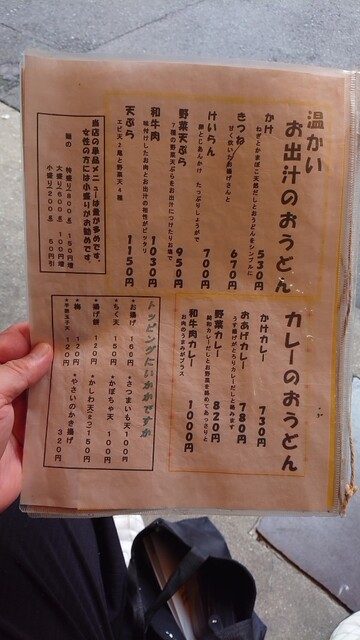 温かい
お出汁のおうどん
かけ 530円
ねぎとかまぼこ天底だしとおうどんをシンプルに
きつね 670円
甘く炊いたお揚げさんと
けいらん 700円
卵とじあんかけ たっぷりしょうがで
野菜天ぷら 950円
7種の野菜天ぷらをお出汁につけたりお塩で
和牛肉 1030円
味付けしたお肉とお出汁の相性がピッタリ
天ぷら 1150円
エビ2尾と野菜天4種
当店の単品メニューは量が多めです。
女性の方には小盛りがお勧めです。
麺の
特盛り(800g) 150円増
大盛り(600g) 100円増
小盛り(200g) 50円引
カレーのおうどん
かけカレー 730円
おあげカレー 780円
うす揚げがとろりカレーだしと絡みます
野菜カレー 820円
和牛肉カレー 1000円
お肉のうまみがプラス
トッピングにいかがですか
・お揚げ 160円
・ちく天 150円
・揚げ餅 120円
・梅 120円
・半熟玉子天 120円
・さつまいも天 100円
・かぼちゃ天 100円
・かしわ天2つ 150円
・やさいのかき揚げ 320円